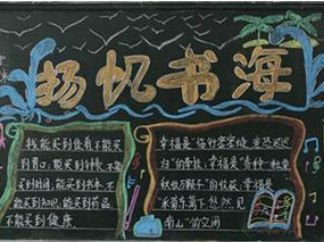 扬帆书海
钱能买到佳肴不能买
到胃口,能买到钟表不能
买到时间,能买到书本不
能买到知识,能买到药品
不能买到健康.
幸福是“临行密密缝,意恐迟迟
归”的牵挂;幸福是“春种一粒粟
秋收万颗子”的收获,幸福是
“采菊东篱下,悠然见
南山”的空闲